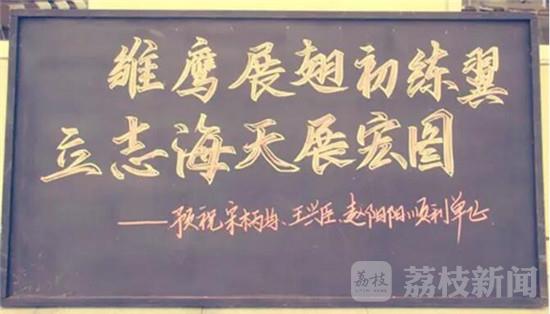 雏鹰展翅初练翼
立志海天展宏图
——预祝宋柄均、王兴臣、赵阳阳顺利单飞
荔枝 荔枝新闻